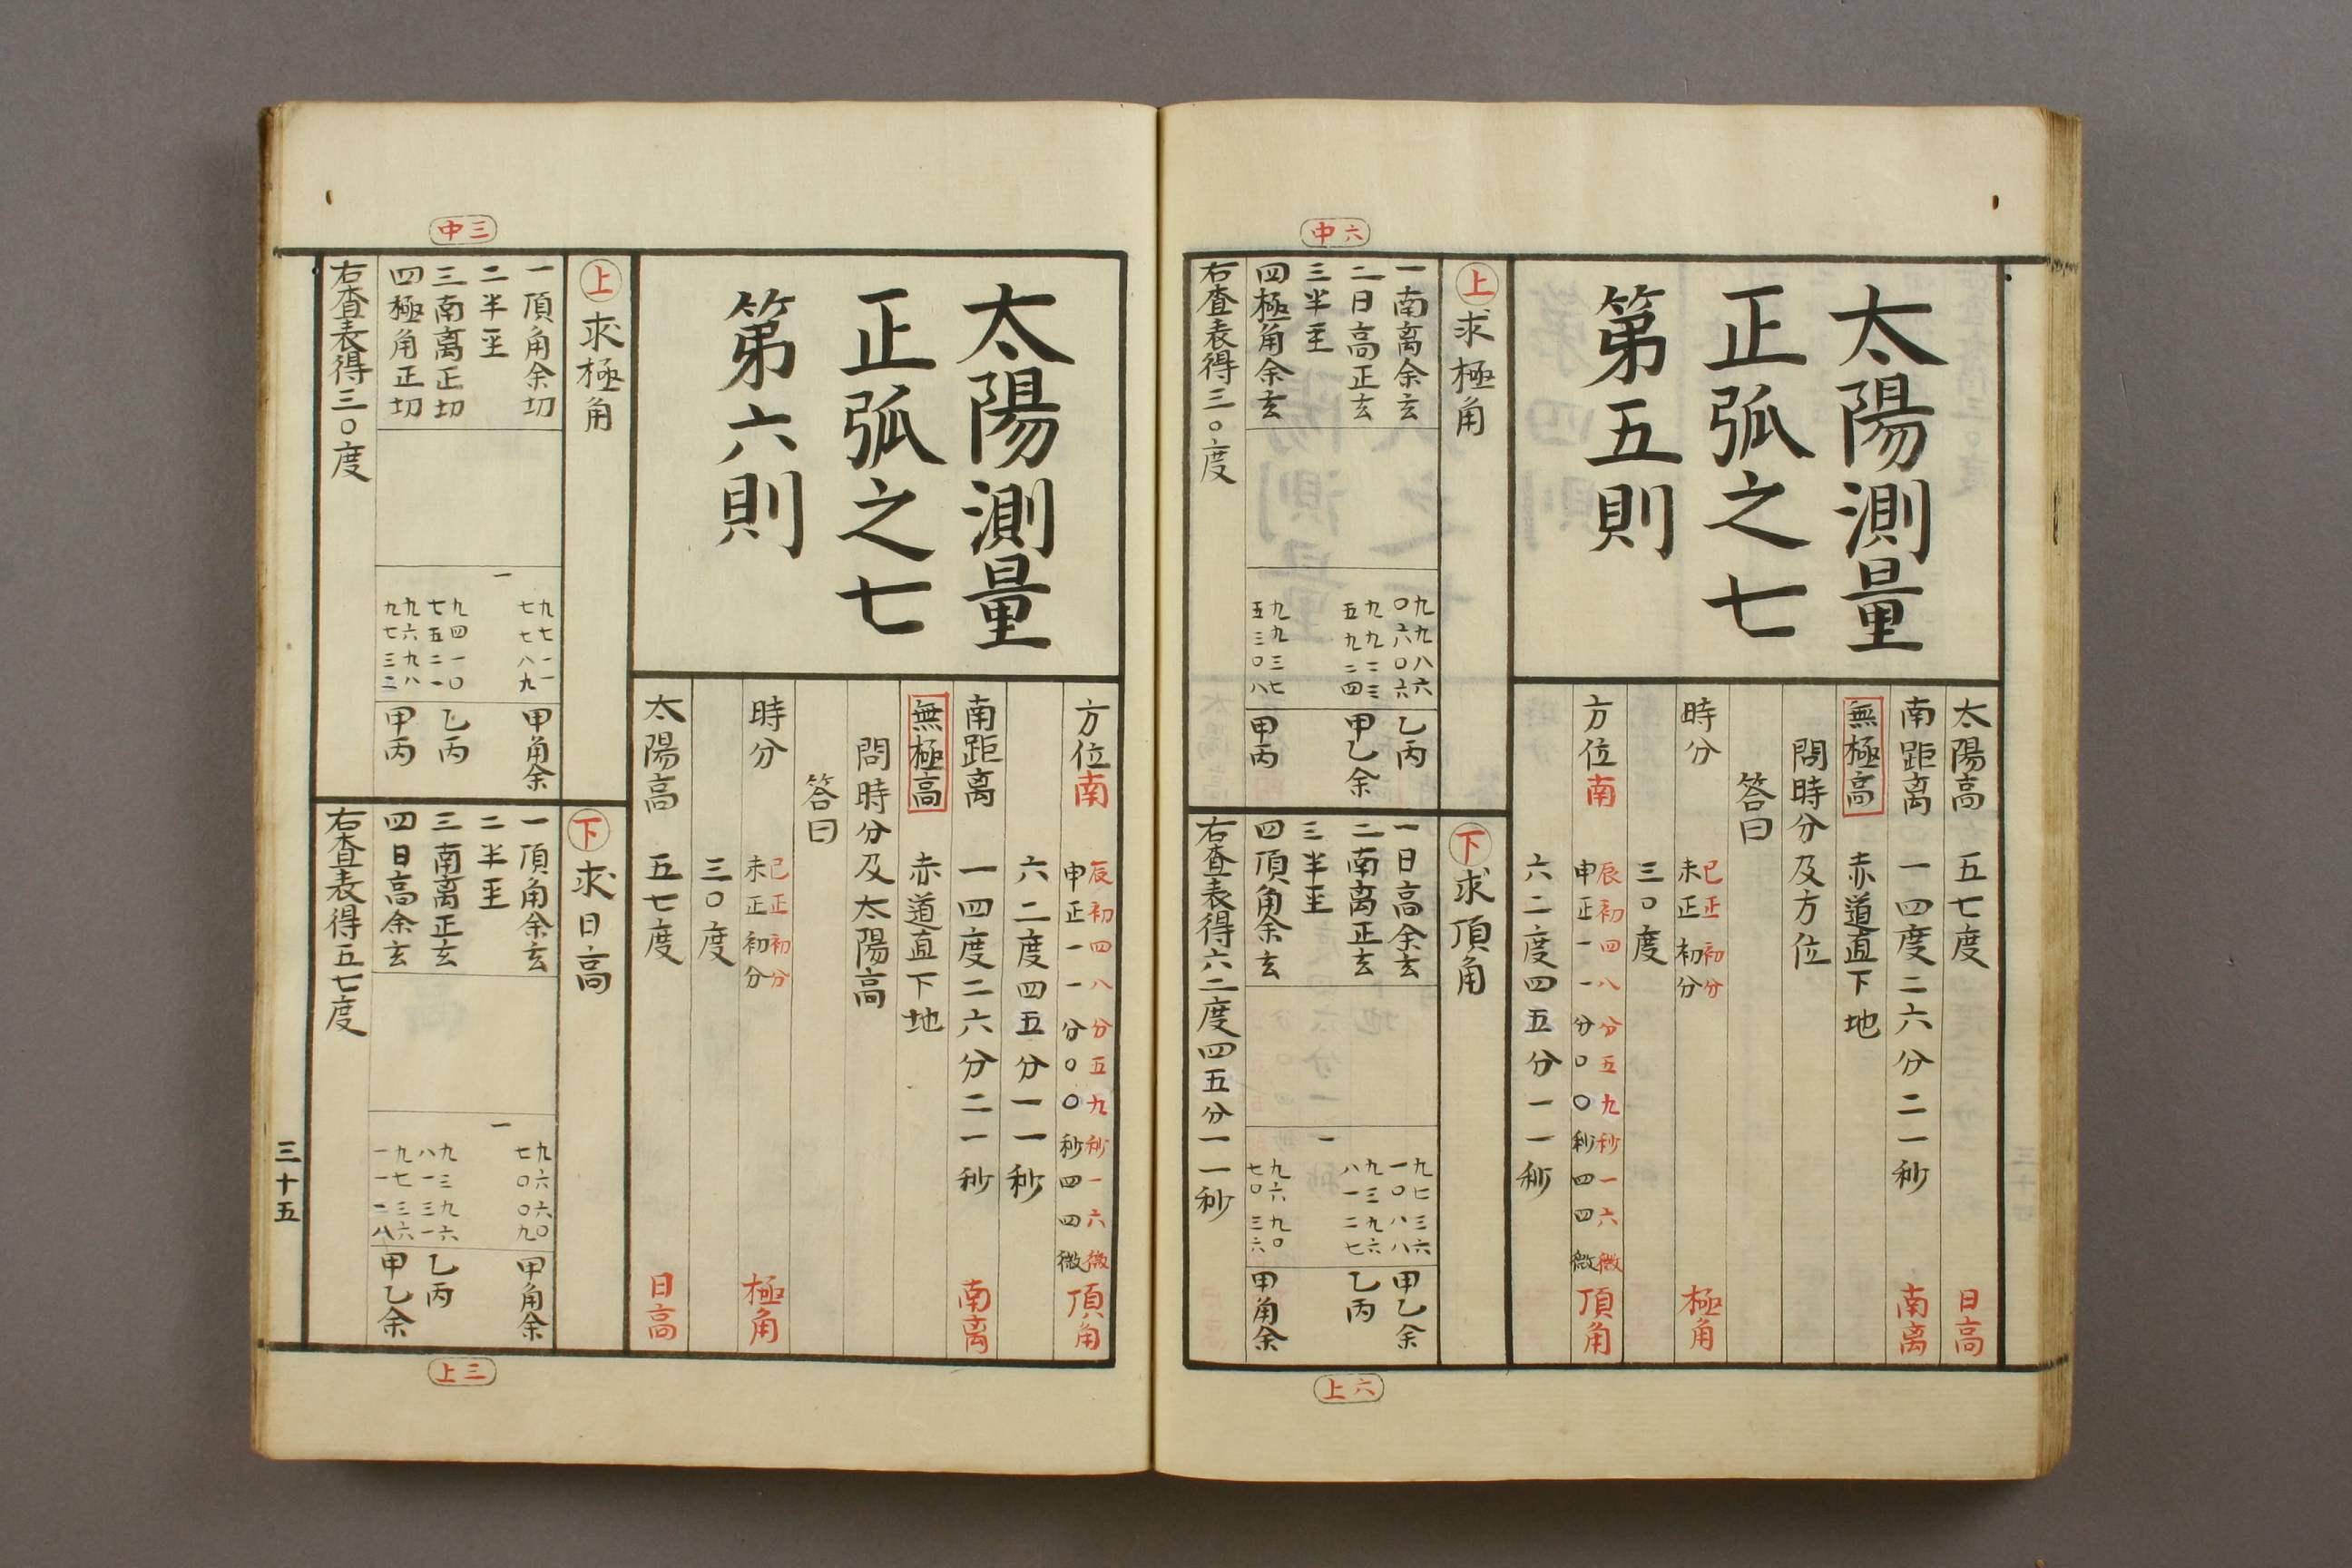 六中
太陽測量
正弧之七
第五則
太陽高 五七度 日高
南距离 一四度二六分二一秒 南离
無極高 赤道直下地
問時分及方位
答曰
時分 巳正初分 極角
未正初分
三〇度
方位南 辰初四八分五九秒一六微 頂角
申正一一分〇〇秒四四微
六二度四五分一一秒
上 求極角
一南离余玄 九九八六 〇六〇六 乙丙
二日高正玄 九九二三 五九一四 甲乙余
三半至
四極角余玄 九九三七 五三〇八 甲丙
右查表得三〇度
下 求頂角
一日高余玄 九七三六 一〇八八 甲乙余
二南离正玄 九三九六 八一二七 乙丙
三半至 一
四頂角余玄 九六六〇 七〇三九 甲角余
右查表得六二度四五分一一秒
六上
三中
太陽測量
正弧之七
第六則
方位南 辰初四八分五九秒一六微 頂角
申正一一分〇〇秒四四微
六二度四五分一一秒
南距离 一四度二六分二一秒 南离
無極高 赤道直下地
問時分及太陽高
答曰
時分 巳正初分 極角
未正初分
三〇度
太陽高 五七度 日高
上 求極角
一頂角余切 九七一一 七七八九 甲角余
二半至 一
三南离正切 九四一〇 七五二一 乙丙
四極角正切 九六九八 九七三二 甲丙
右查表得三〇度
下 求日高
一頂角余玄 九六六〇 七〇〇九 甲角余
二半至 一
三南离正玄 九三九六 八一三一 乙丙
四日高余玄 九七三六 一一二八 甲乙余
右查表得五七度
三十五
三上